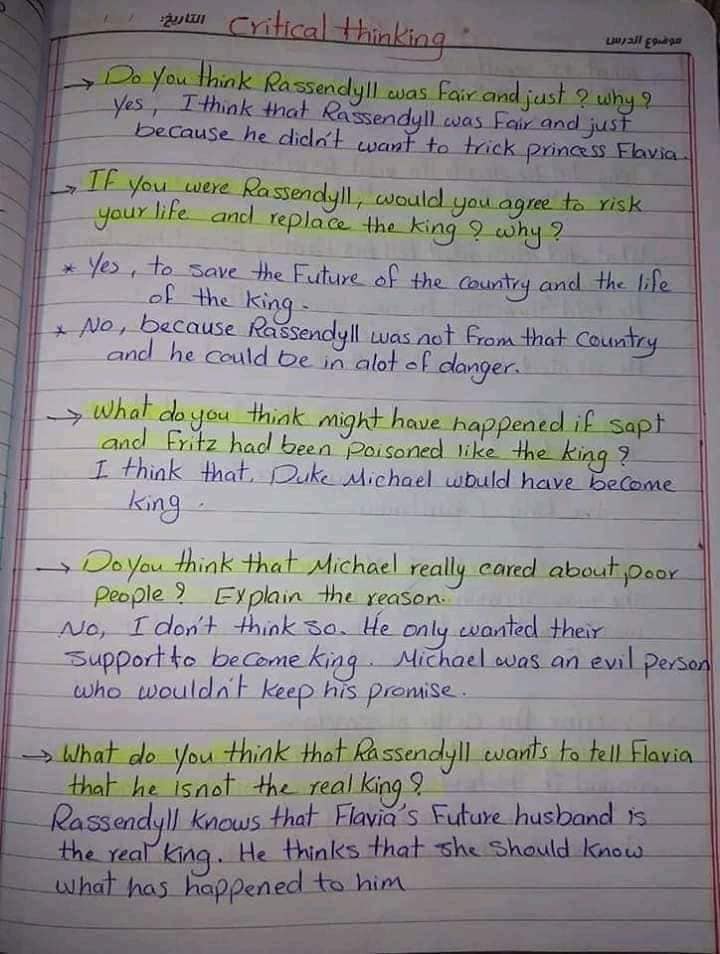 التاريخ: / /
موضوع الدرس
Critical thinking:
→ Do You think Rassendyll was fair and just ? why ?
Yes, I think that Rassendyll was fair and just
because he didn't want to trick princess Flavia.
→ If you were Rassendyll, would you agree to risk
your life and replace the king ? why ?
* Yes, to save the future of the country and the life
of the king.
* No, because Rassendyll was not from that country
and he could be in alot of danger.
→ what do you think might have happened if sapt
and Fritz had been poisoned like the king ?
I think that, Duke Michael would have become
king.
→ Do you think that Michael really cared about poor
people ? Explain the reason.
No, I don't think so. He only wanted their
support to become king. Michael was an evil person
who wouldn't keep his promise.
→ What do you think that Rassendyll wants to tell Flavia
that he is not the real king ?
Rassendyll knows that Flavia's future husband is
the real king. He thinks that she should know
what has happened to him